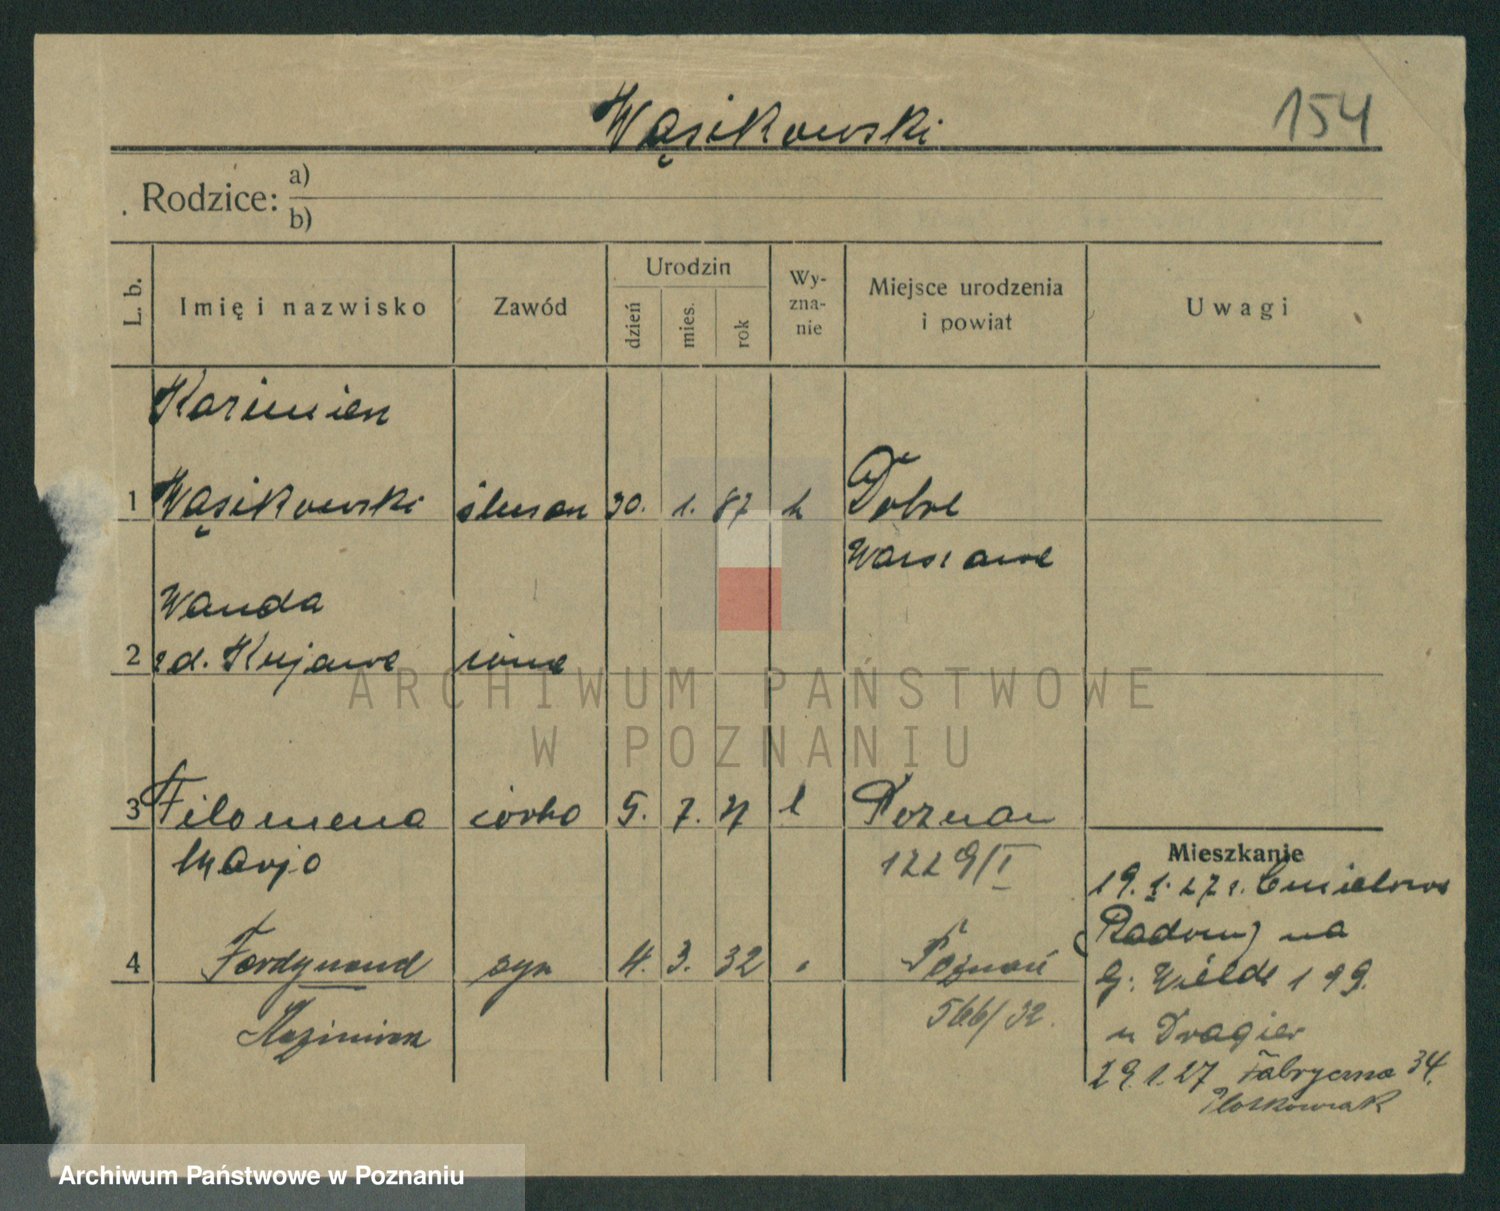 Wąsikowski 154
Rodzice: a)
b)
L. b. Imię i nazwisko Zawód Urodzin dzień mies. rok Wy-zna-nie Miejsce urodzenia i powiat Uwagi
Kazimierz
1 Wąsikowski ślusarz 30. 1. 87 k Dobre
Warszawa
Wanda
2 zd. Kujawa żona
3 Filomena córka 5. 7. k Poznań
Marja 1229/I
Mieszkanie
19. 1. 27 z Ćmielowa
4 Ferdynand syn 4. 3. 32 " Poznań
(Radom) na
Kazimierz 566/32.
G. Wilda 199.
u Dragier
29.1.27 Fabryczna 34.
ARCHIWUM PAŃSTWOWE
W POZNANIU
Archiwum Państwowe w Poznaniu